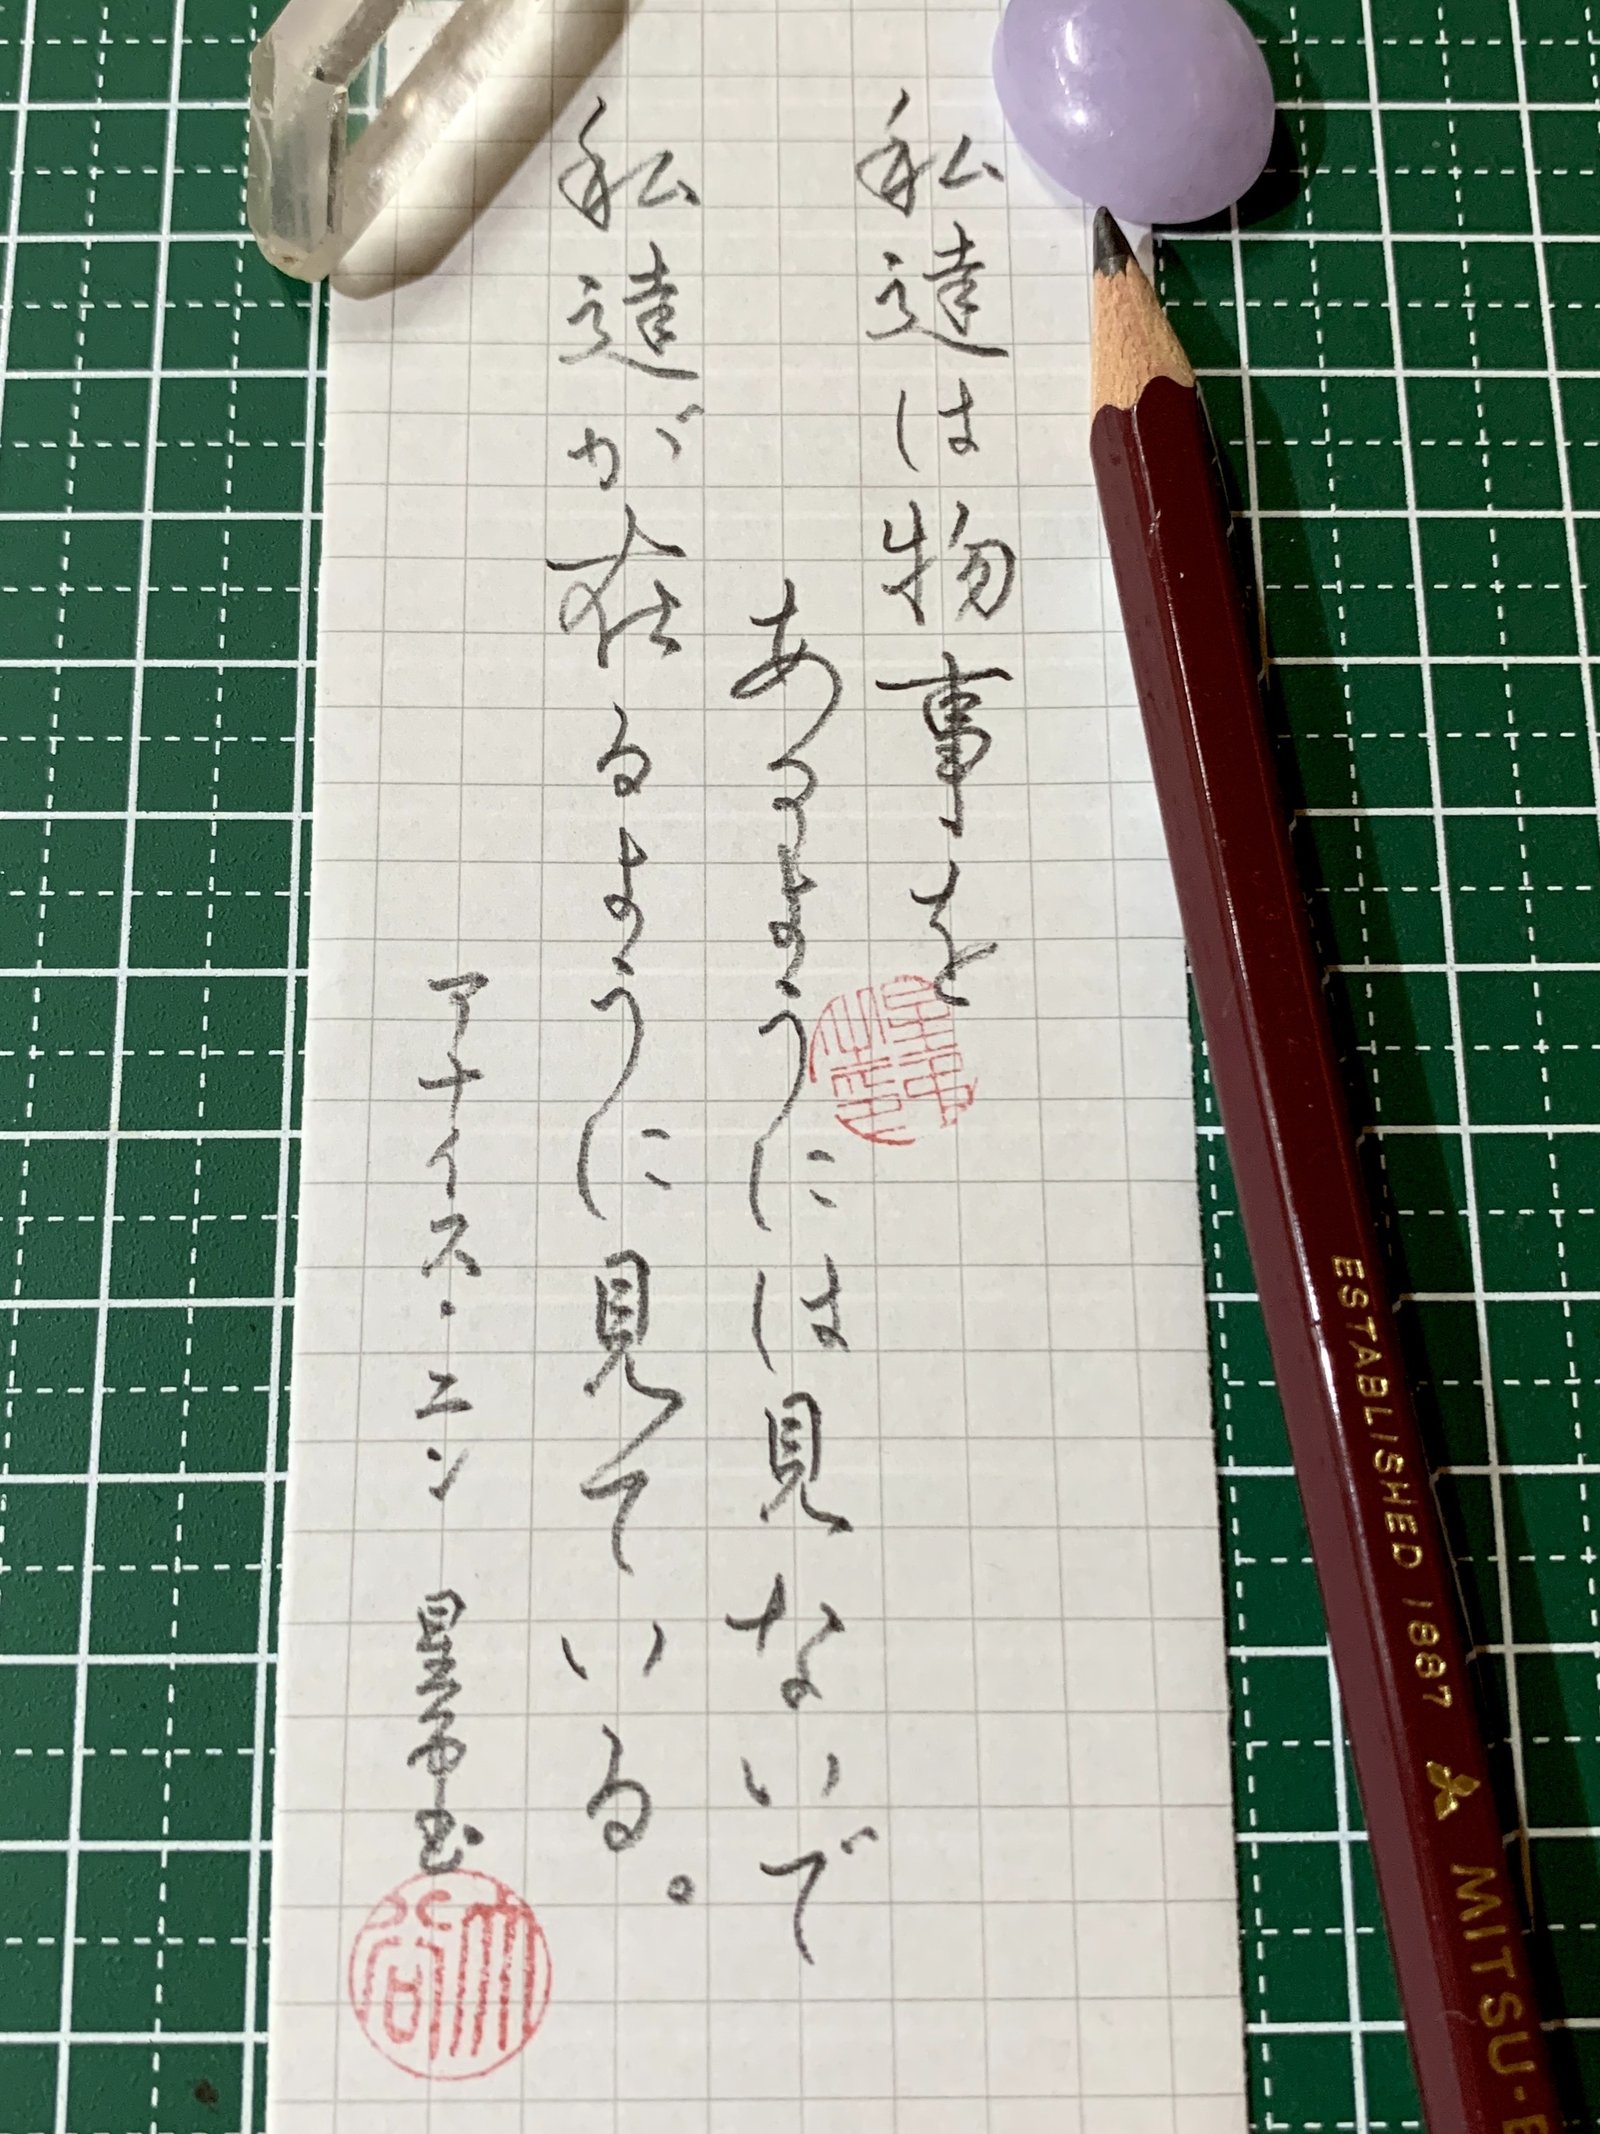 私達は物事を
あるようには見ないで
私達が在るように見ている。
アナイス・ニン
ESTABLISHED 1887 MITSU-B